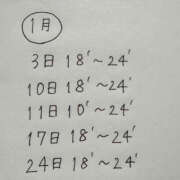 1月
3日 18'～24'
10日 18'～24'
11日 10'～24'
17日 18'～24'
24日 18'～24'